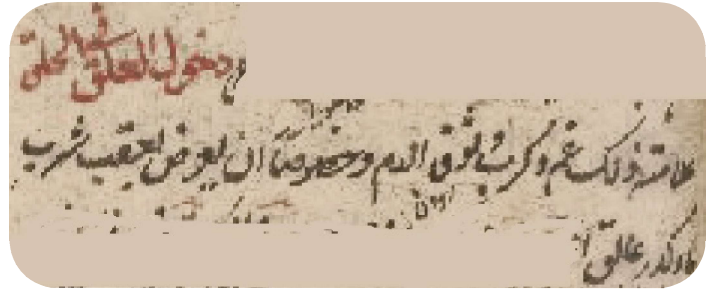 دخول العلق في الحلق
علامة ذلك غم وكرب ونفث الدم وخصوصا ان يعرض بعقيب شرب
ماء كدر علق